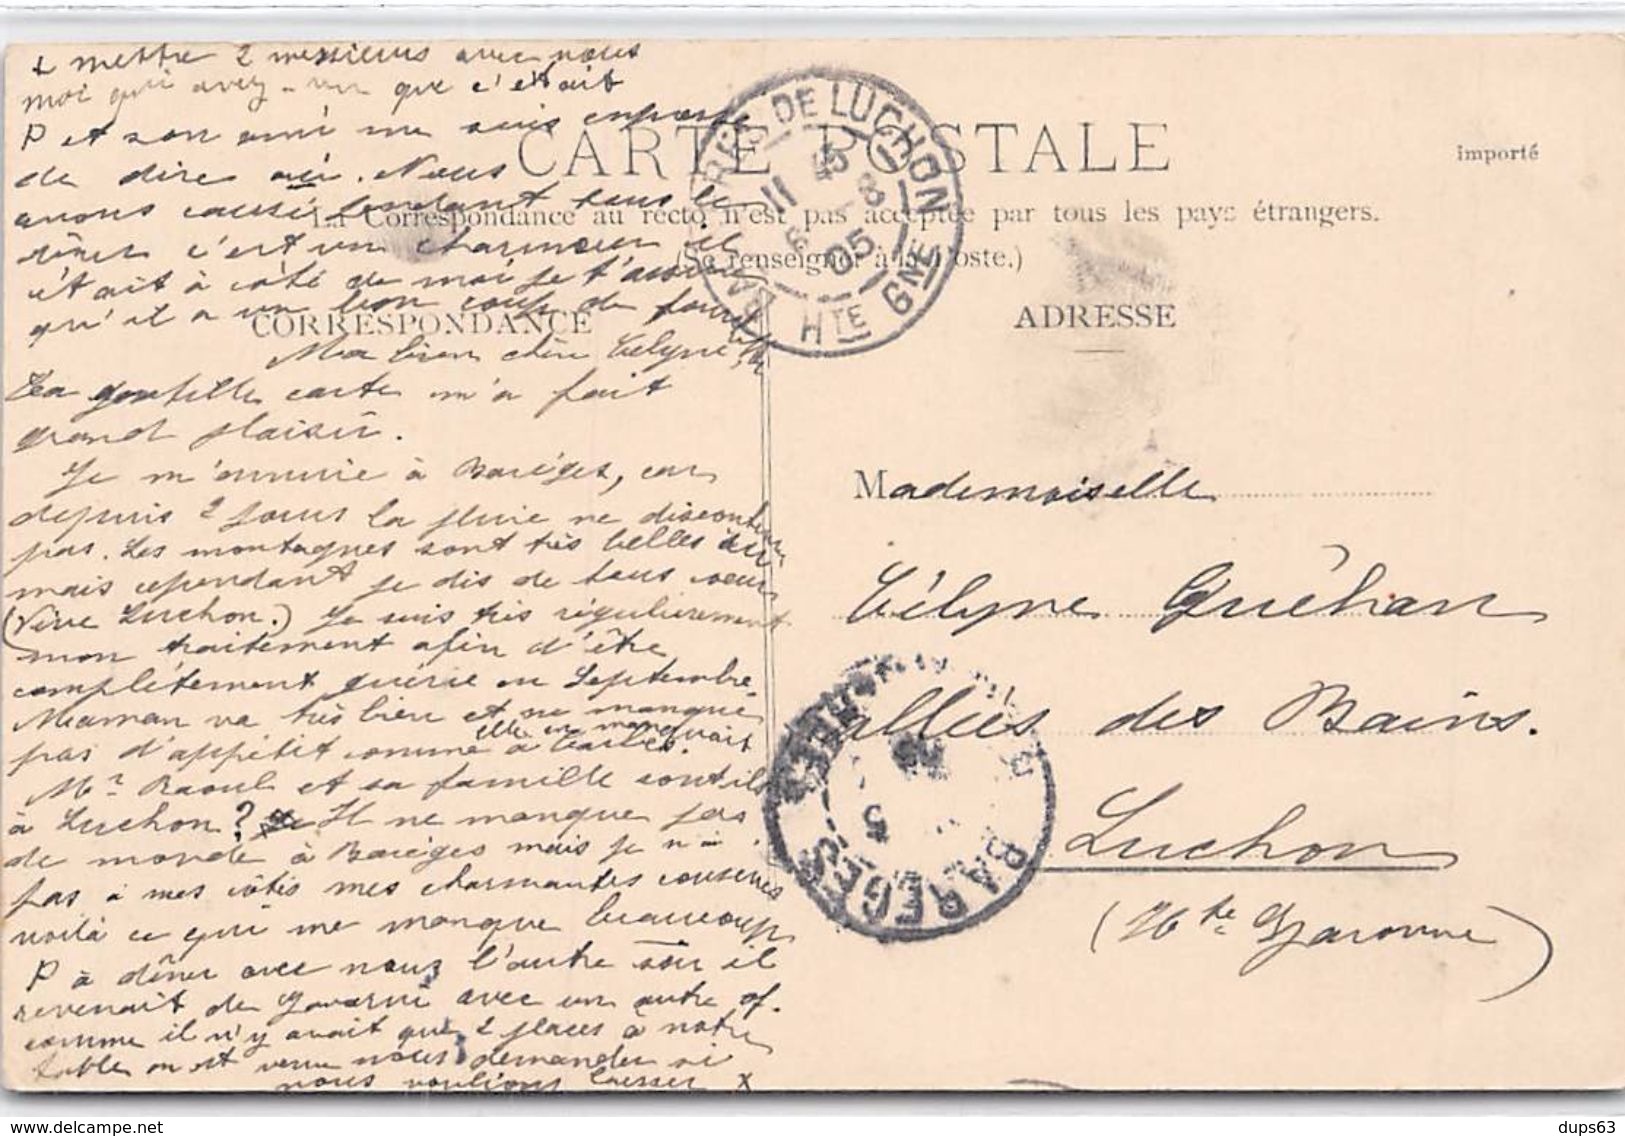 x mettre 2 messieurs avec nous
moi qui avez-vu que c'était
P et son ami me suis empressé
de dire oui. Nous
avons causé pendant tous le
dîner c'est un charmeur il
était à côté de moi je t'assure
qu'il a un bon coup de fourchette
CARTE POSTALE
importé
La Correspondance au recto n'est pas acceptée par tous les pays étrangers.
(Se renseigner à la Poste.)
CORRESPONDANCE
ADRESSE
BAGNÈRES DE LUCHON
11 5 - 8 05
HTE GNE
Ma bien chère Célyne
Ta gentille carte m'a fait
grand plaisir.
Je m'ennuie à Barèges, car
depuis 2 jours la pluie ne discontinue
pas. Les montagnes sont très belles
mais cependant je dis de tous coeur
(Vive Luchon.) Je suis très régulièrement
mon traitement afin d'être
complètement guérie en Septembre.
Maman va très bien et ne manque
pas d'appétit comme elle en manquait à Tarbes.
Mr Raoul et sa famille sont ils
à Luchon? Il ne manque pas
de monde à Barèges mais je n'ai
pas à mes côtés mes charmantes cousines
voilà ce qui me manque beaucoup
P à dîner avec nous l'autre soir il
revenait de Gavarni avec un autre of.
comme il n'y avait que 2 places à notre
table on est venu nous demander si
nous voulions laisser x
Mademoiselle
Célyne Guéhan
allées des Bains.
Luchon
(Hte Garonne)
BAREGES
dups63